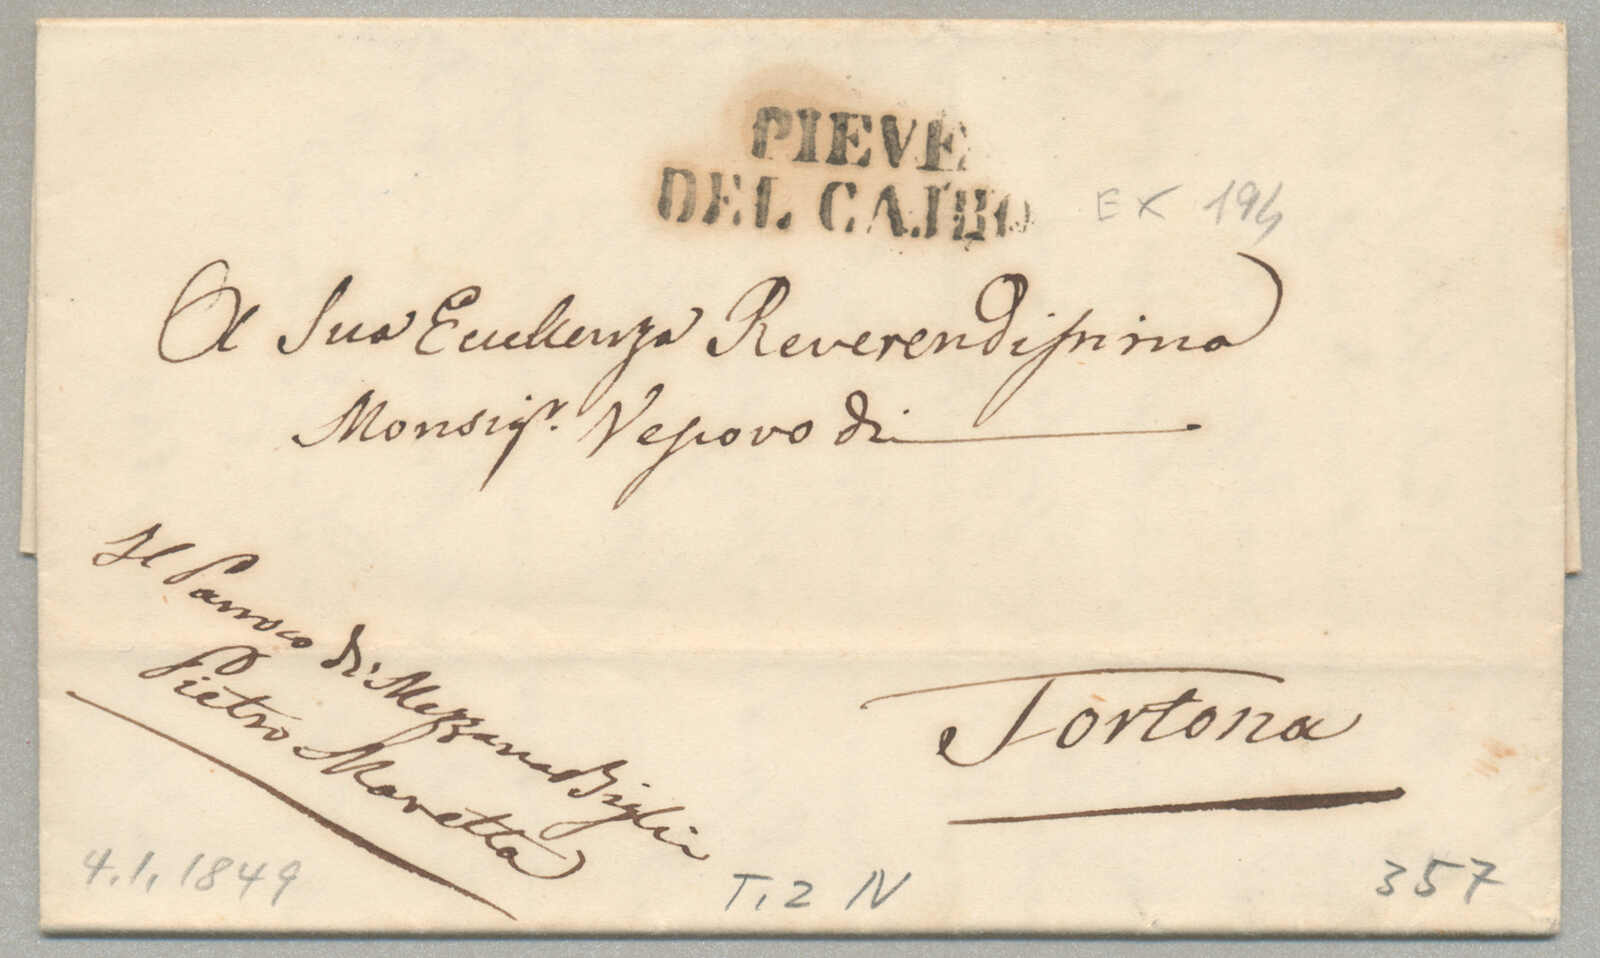 PIEVE
DEL CAIRO
EX 194
A Sua Eccellenza Reverendissima
Monsigr. Vescovo di
Il Parroco di Mezzana Bigli
Pietro Maretta
Tortona
4.1.1849
T.2 N
357